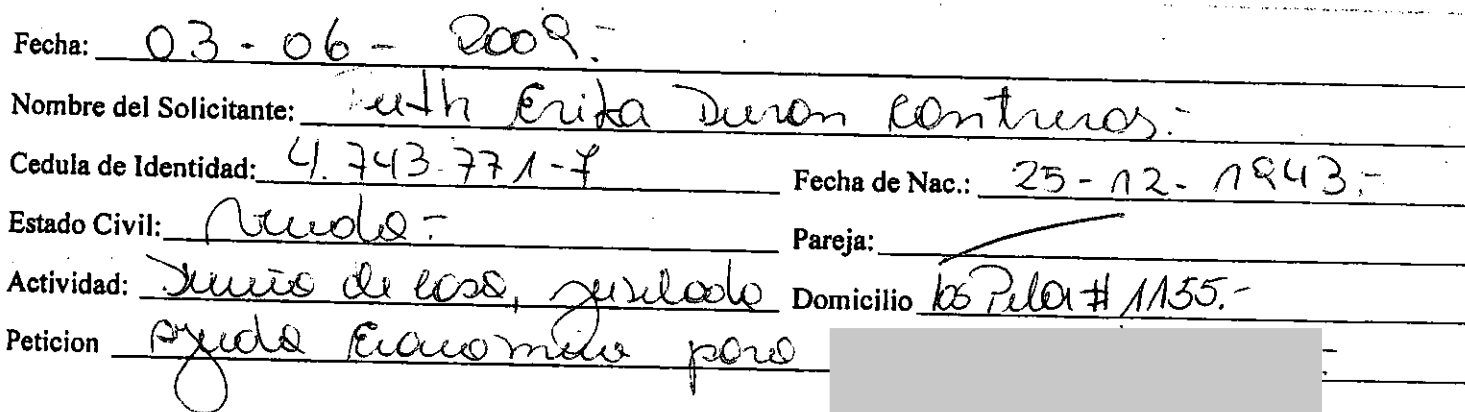 Fecha: 03-06-2009.-
Nombre del Solicitante: Ruth Erika Duran Contreras.-
Cedula de Identidad: 4.743.771-7 Fecha de Nac.: 25-12-1943.-
Estado Civil: Viuda.-
Pareja:
Actividad: Dueña de casa, jubilada Domicilio #1155.-
Peticion Ayuda Economica para